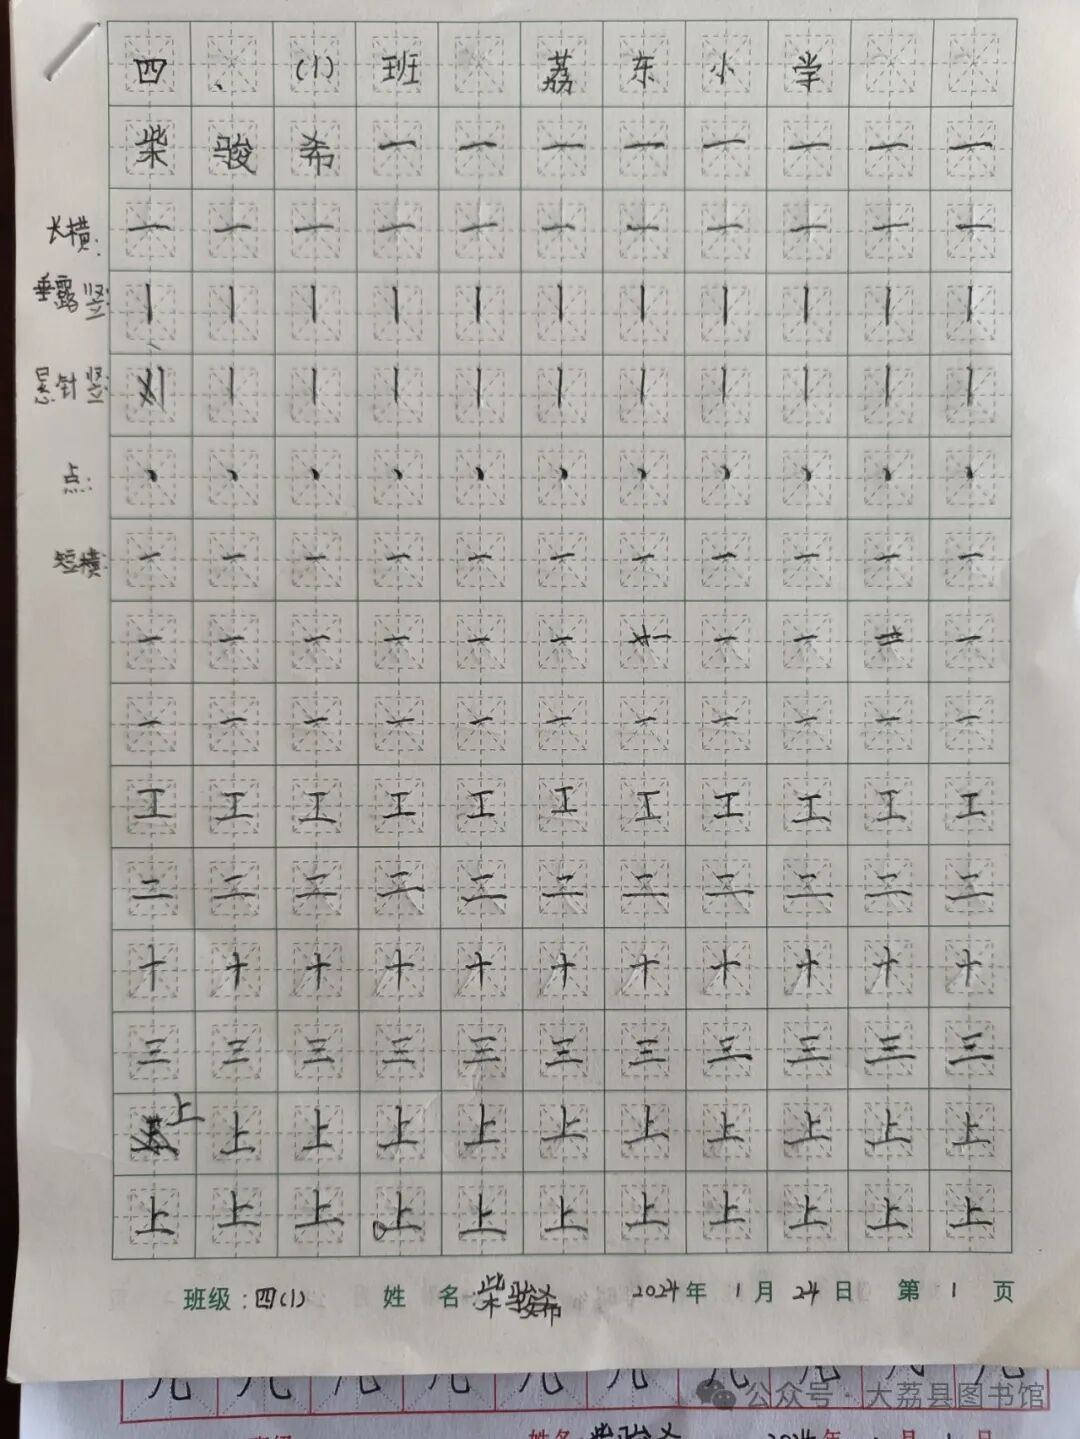 四 、 (1) 班 荔 东 小 学
柴 骏 希 一 一 一 一 一 一 一 一
长横: 一 一 一 一 一 一 一 一 一 一 一
垂露竖: 丨 丨 丨 丨 丨 丨 丨 丨 丨 丨 丨
悬针竖: 丨 丨 丨 丨 丨 丨 丨 丨 丨 丨 丨
点: 丶 丶 丶 丶 丶 丶 丶 丶 丶 丶 丶
短横: 一 一 一 一 一 一 一 一 一 一 一
一 一 一 一 一 一 一 一 一 一
一 一 一 一 一 一 一 一 一 一 一
工 工 工 工 工 工 工 工 工 工 工
二 二 二 二 二 二 二 二 二 二 二
十 十 十 十 十 十 十 十 十 十 十
三 三 三 三 三 三 三 三 三 三 三
上 上 上 上 上 上 上 上 上 上 上
上 上 上 上 上 上 上 上 上 上 上
班级:四(1) 姓 名:柴骏希 2024年 1月 24日 第 1 页
公众号·大荔县图书馆
姓名:柴骏希 2024年 1月 日